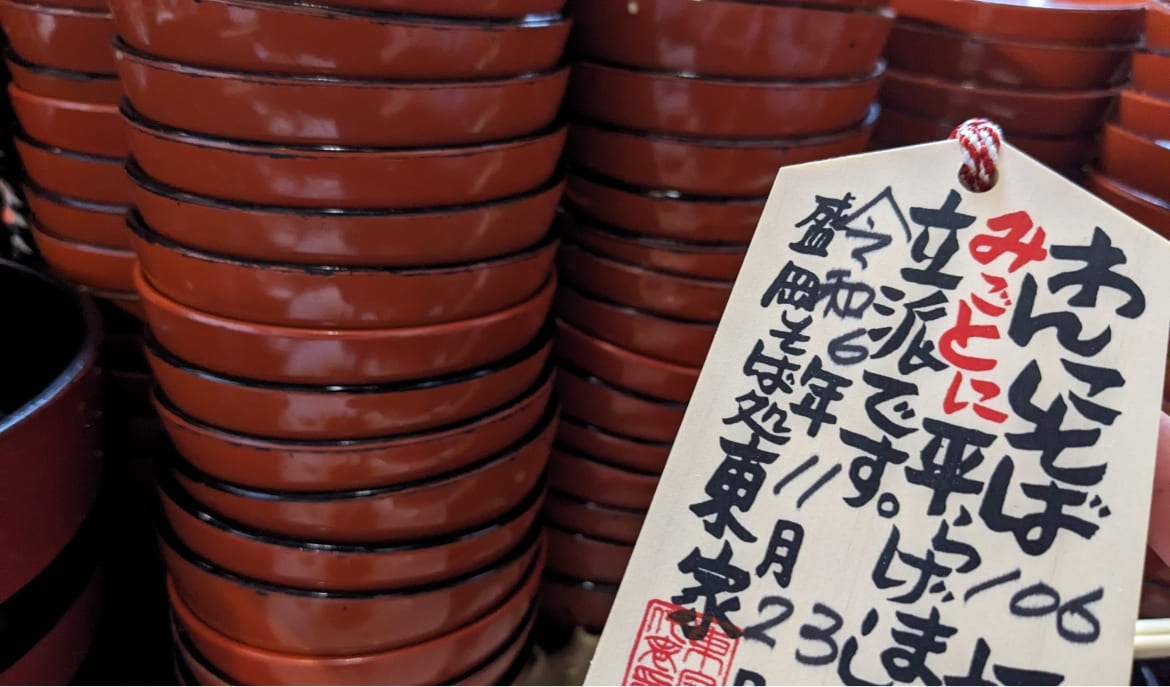 わんこそば106
みごとに平らげまし
立派です。
令和6年11月23
盛岡そば処東家